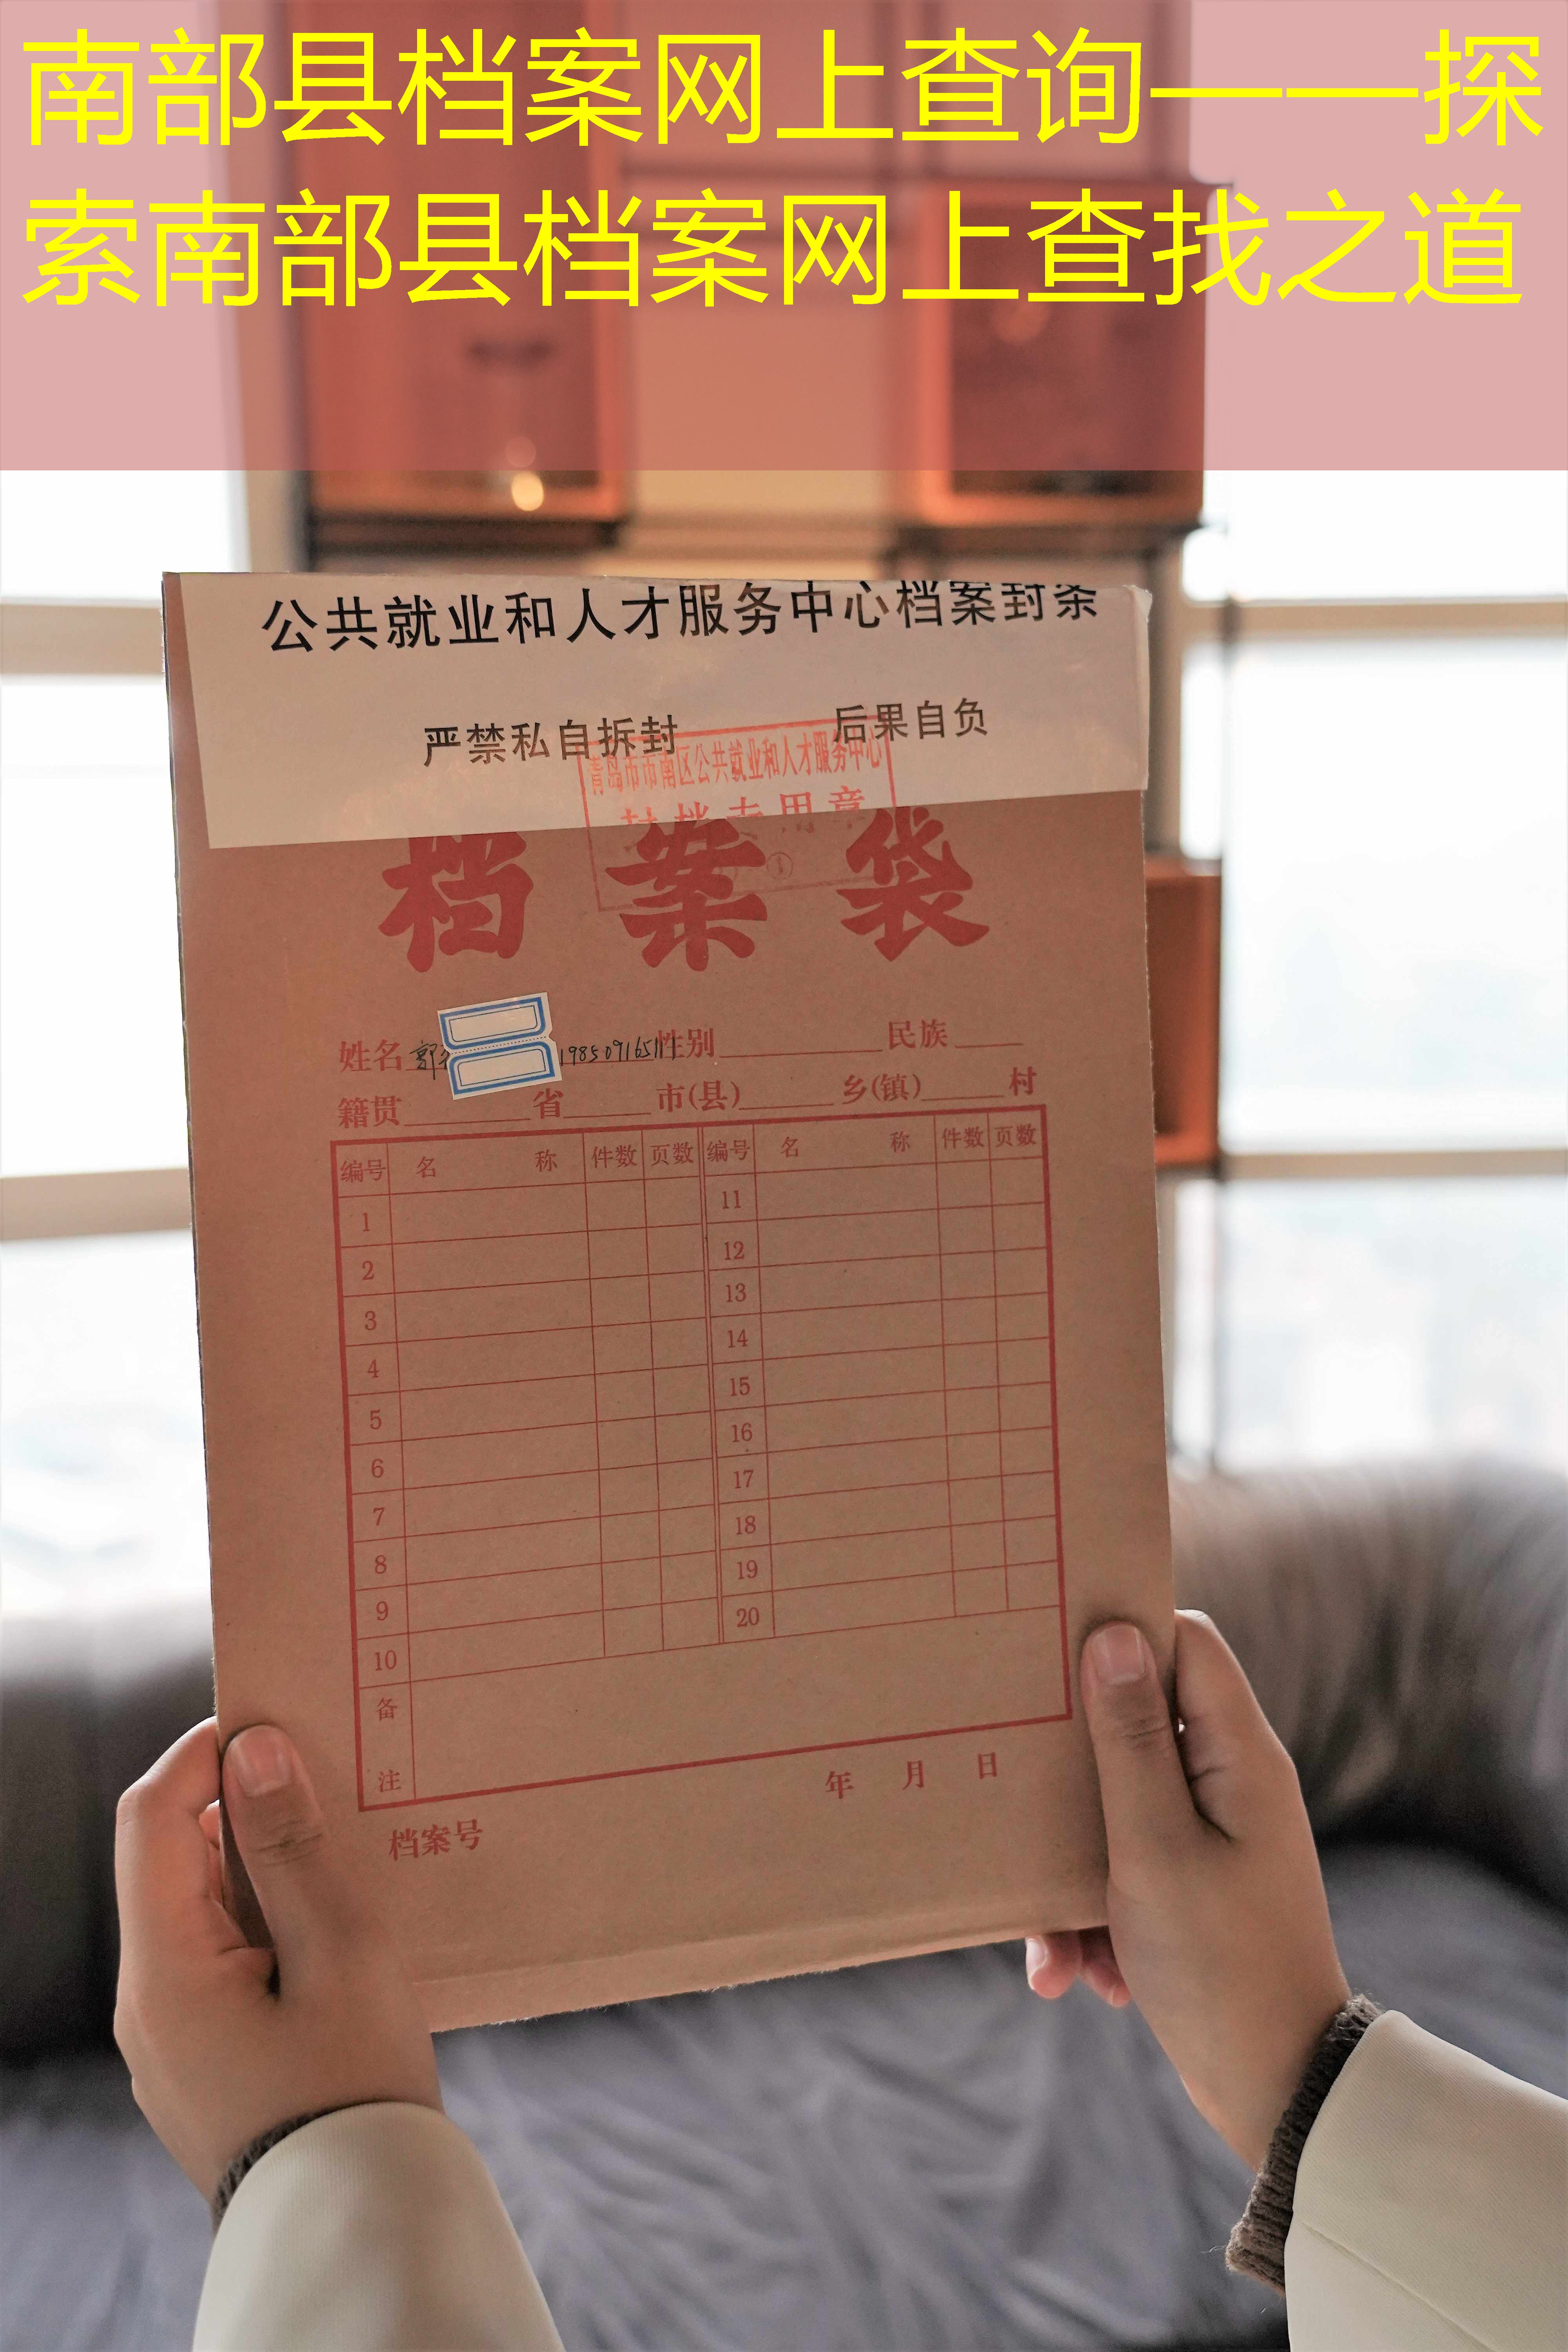 南部县档案网上查询——探
索南部县档案网上查找之道
公共就业和人才服务中心档案封条
严禁私自拆封 后果自负
青岛市市南区公共就业和人才服务中心
封档专用章
档案袋
姓名 郭 1985091651 性别 民族
籍贯 省 市(县) 乡(镇) 村
编号 名 称 件数 页数 编号 名 称 件数 页数
1 11
2 12
3 13
4 14
5 15
6 16
7 17
8 18
9 19
10 20
备
注
年 月 日
档案号